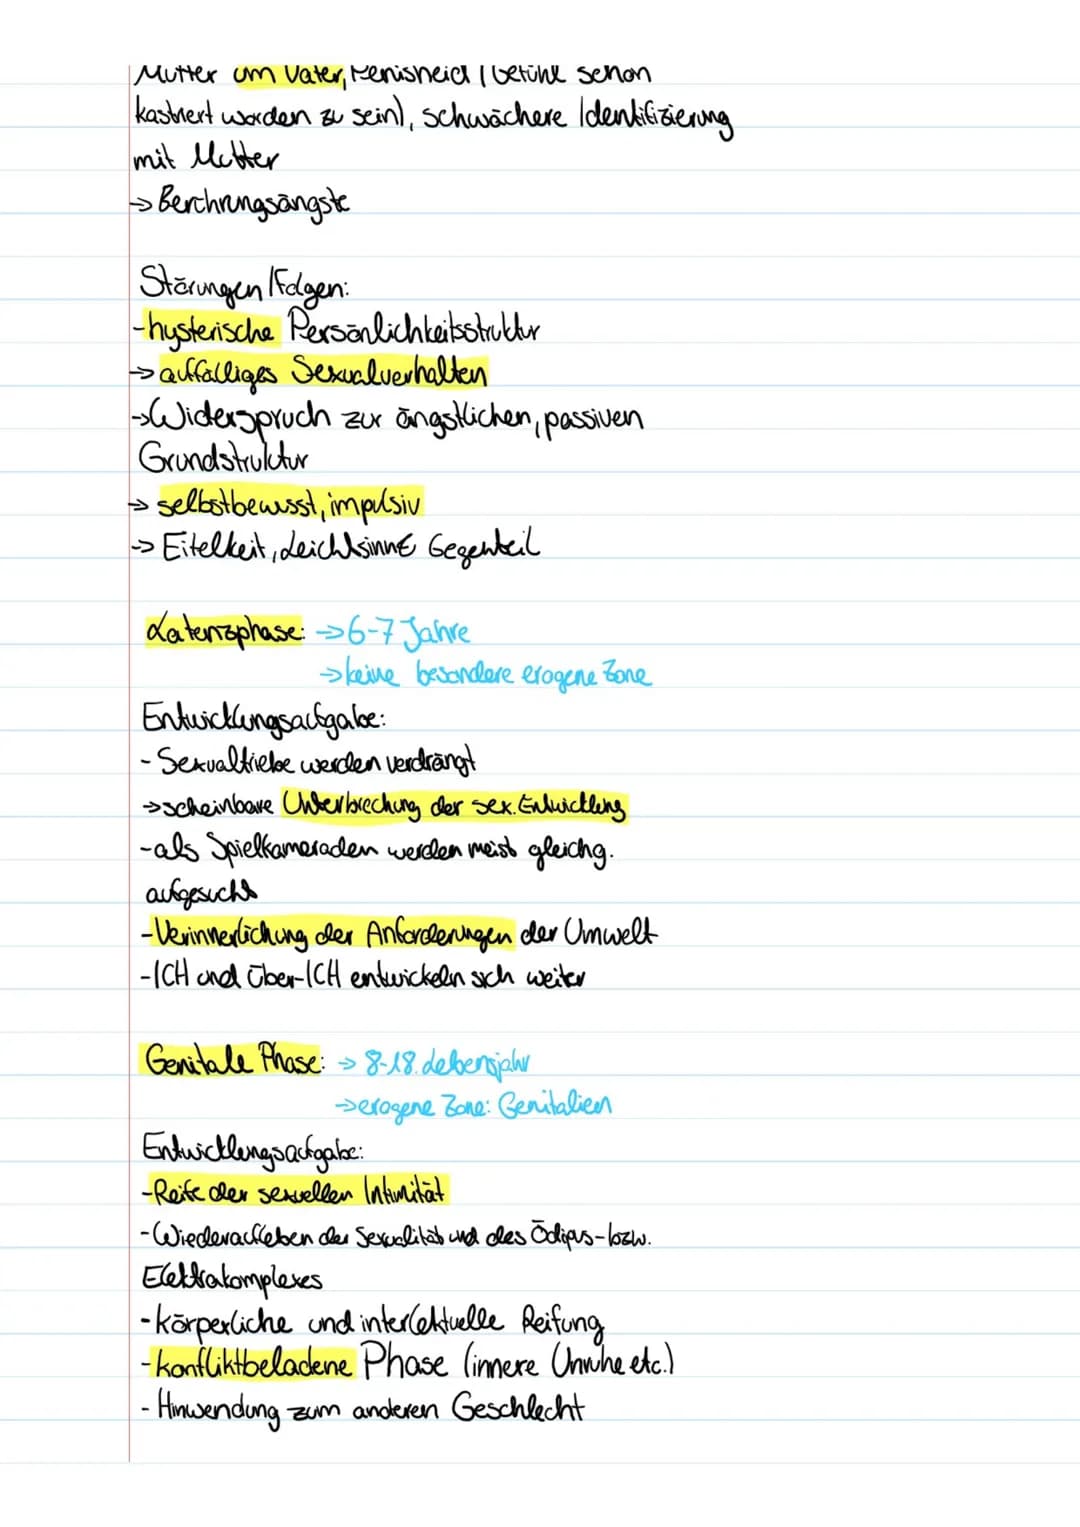 Mutter um Vater, Penisneid (Gefühl schon
kastriert worden zu sein), schwächere Identifizierung
mit Mutter
→ Berührungsängste
Störungen/Folgen:
-hysterische Persönlichkeitsstruktur
→ auffälliges Sexualverhalten
→Widerspruch zur ängstlichen, passiven
Grundstruktur
→ selbstbewusst, impulsiv
→ Eitelkeit, Leichtsinn Gegenteil
Latenzphase: →6-7 Jahre
→keine besondere erogene Zone
Entwicklungsaufgabe:
- Sexualtriebe werden verdrängt
→scheinbare Unterbrechung der sex. Entwicklung
-als Spielkameraden werden meist gleichg.
aufgesucht
-Verinnerlichung der Anforderungen der Umwelt
-ICH und Über-ICH entwickeln sich weiter
Genitale Phase: → 8-18. Lebensjahr
→erogene Zone: Genitalien
Entwicklungsaufgabe:
-Reife der sexuellen Intimität
-Wiederaufleben der Sexualität und des Ödipus-bzw.
Elektrakomplexes
-körperliche und intellektuelle Reifung
-konfliktbeladene Phase (innere Unruhe etc.)
- Hinwendung zum anderen Geschlecht